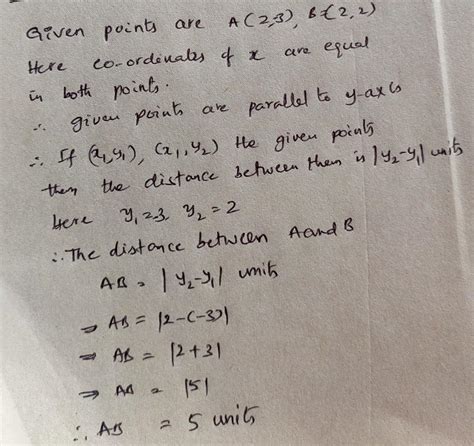 Given points are A(2,3), B(2,2)
Here co-ordinates of x are equal
in both points.
∴ given points are parallel to y-axis
∴ If (x₁,y₁), (x₁,y₂) the given points
then the distance between then is |y₂-y₁| units
here y₁=3, y₂=2
∴ The distance between A and B
AB = |y₂-y₁| units
⇒ AB = |2-(-3)|
⇒ AB = |2+3|
⇒ AB = |5|
∴ AB = 5 units